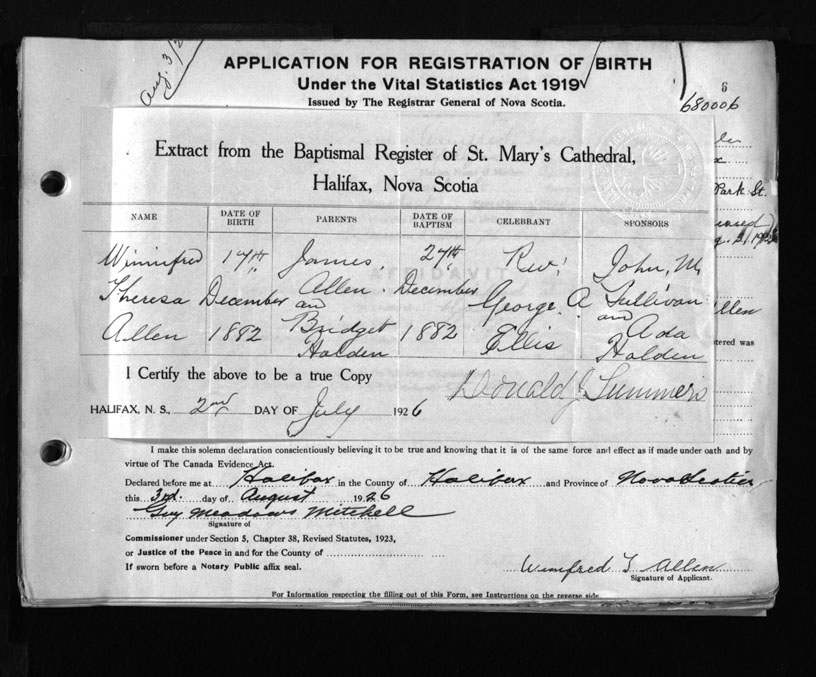 Aug. 3/2
APPLICATION FOR REGISTRATION OF BIRTH
Under the Vital Statistics Act 1919
Issued by The Registrar General of Nova Scotia.
6
680006
Extract from the Baptismal Register of St. Mary's Cathedral,
Halifax, Nova Scotia
Park St.
NAME DATE OF BIRTH PARENTS DATE OF BAPTISM CELEBRANT SPONSORS
Winnifred 17th James 24th Rev. John, M,
Theresa December Allen December George. A Sullivan
an and
Allen 1882 Bridget 1882 Ellis Ada
Holden Holden
llen
tered was
I Certify the above to be a true Copy
Donald J Summers
HALIFAX, N. S., 2nd DAY OF July 1926
I make this solemn declaration conscientiously believing it to be true and knowing that it is of the same force and effect as if made under oath and by
virtue of The Canada Evidence Act.
Declared before me at Halifax in the County of Halifax and Province of Nova Scotia
this 3rd. day of August 1926
Guy Meadows Mitchell
Signature of
Commissioner under Section 5, Chapter 38, Revised Statutes, 1923,
or Justice of the Peace in and for the County of
If sworn before a Notary Public affix seal.
Winifred T Allen
Signature of Applicant.
For Information respecting the filling out of this Form, see Instructions on the reverse side